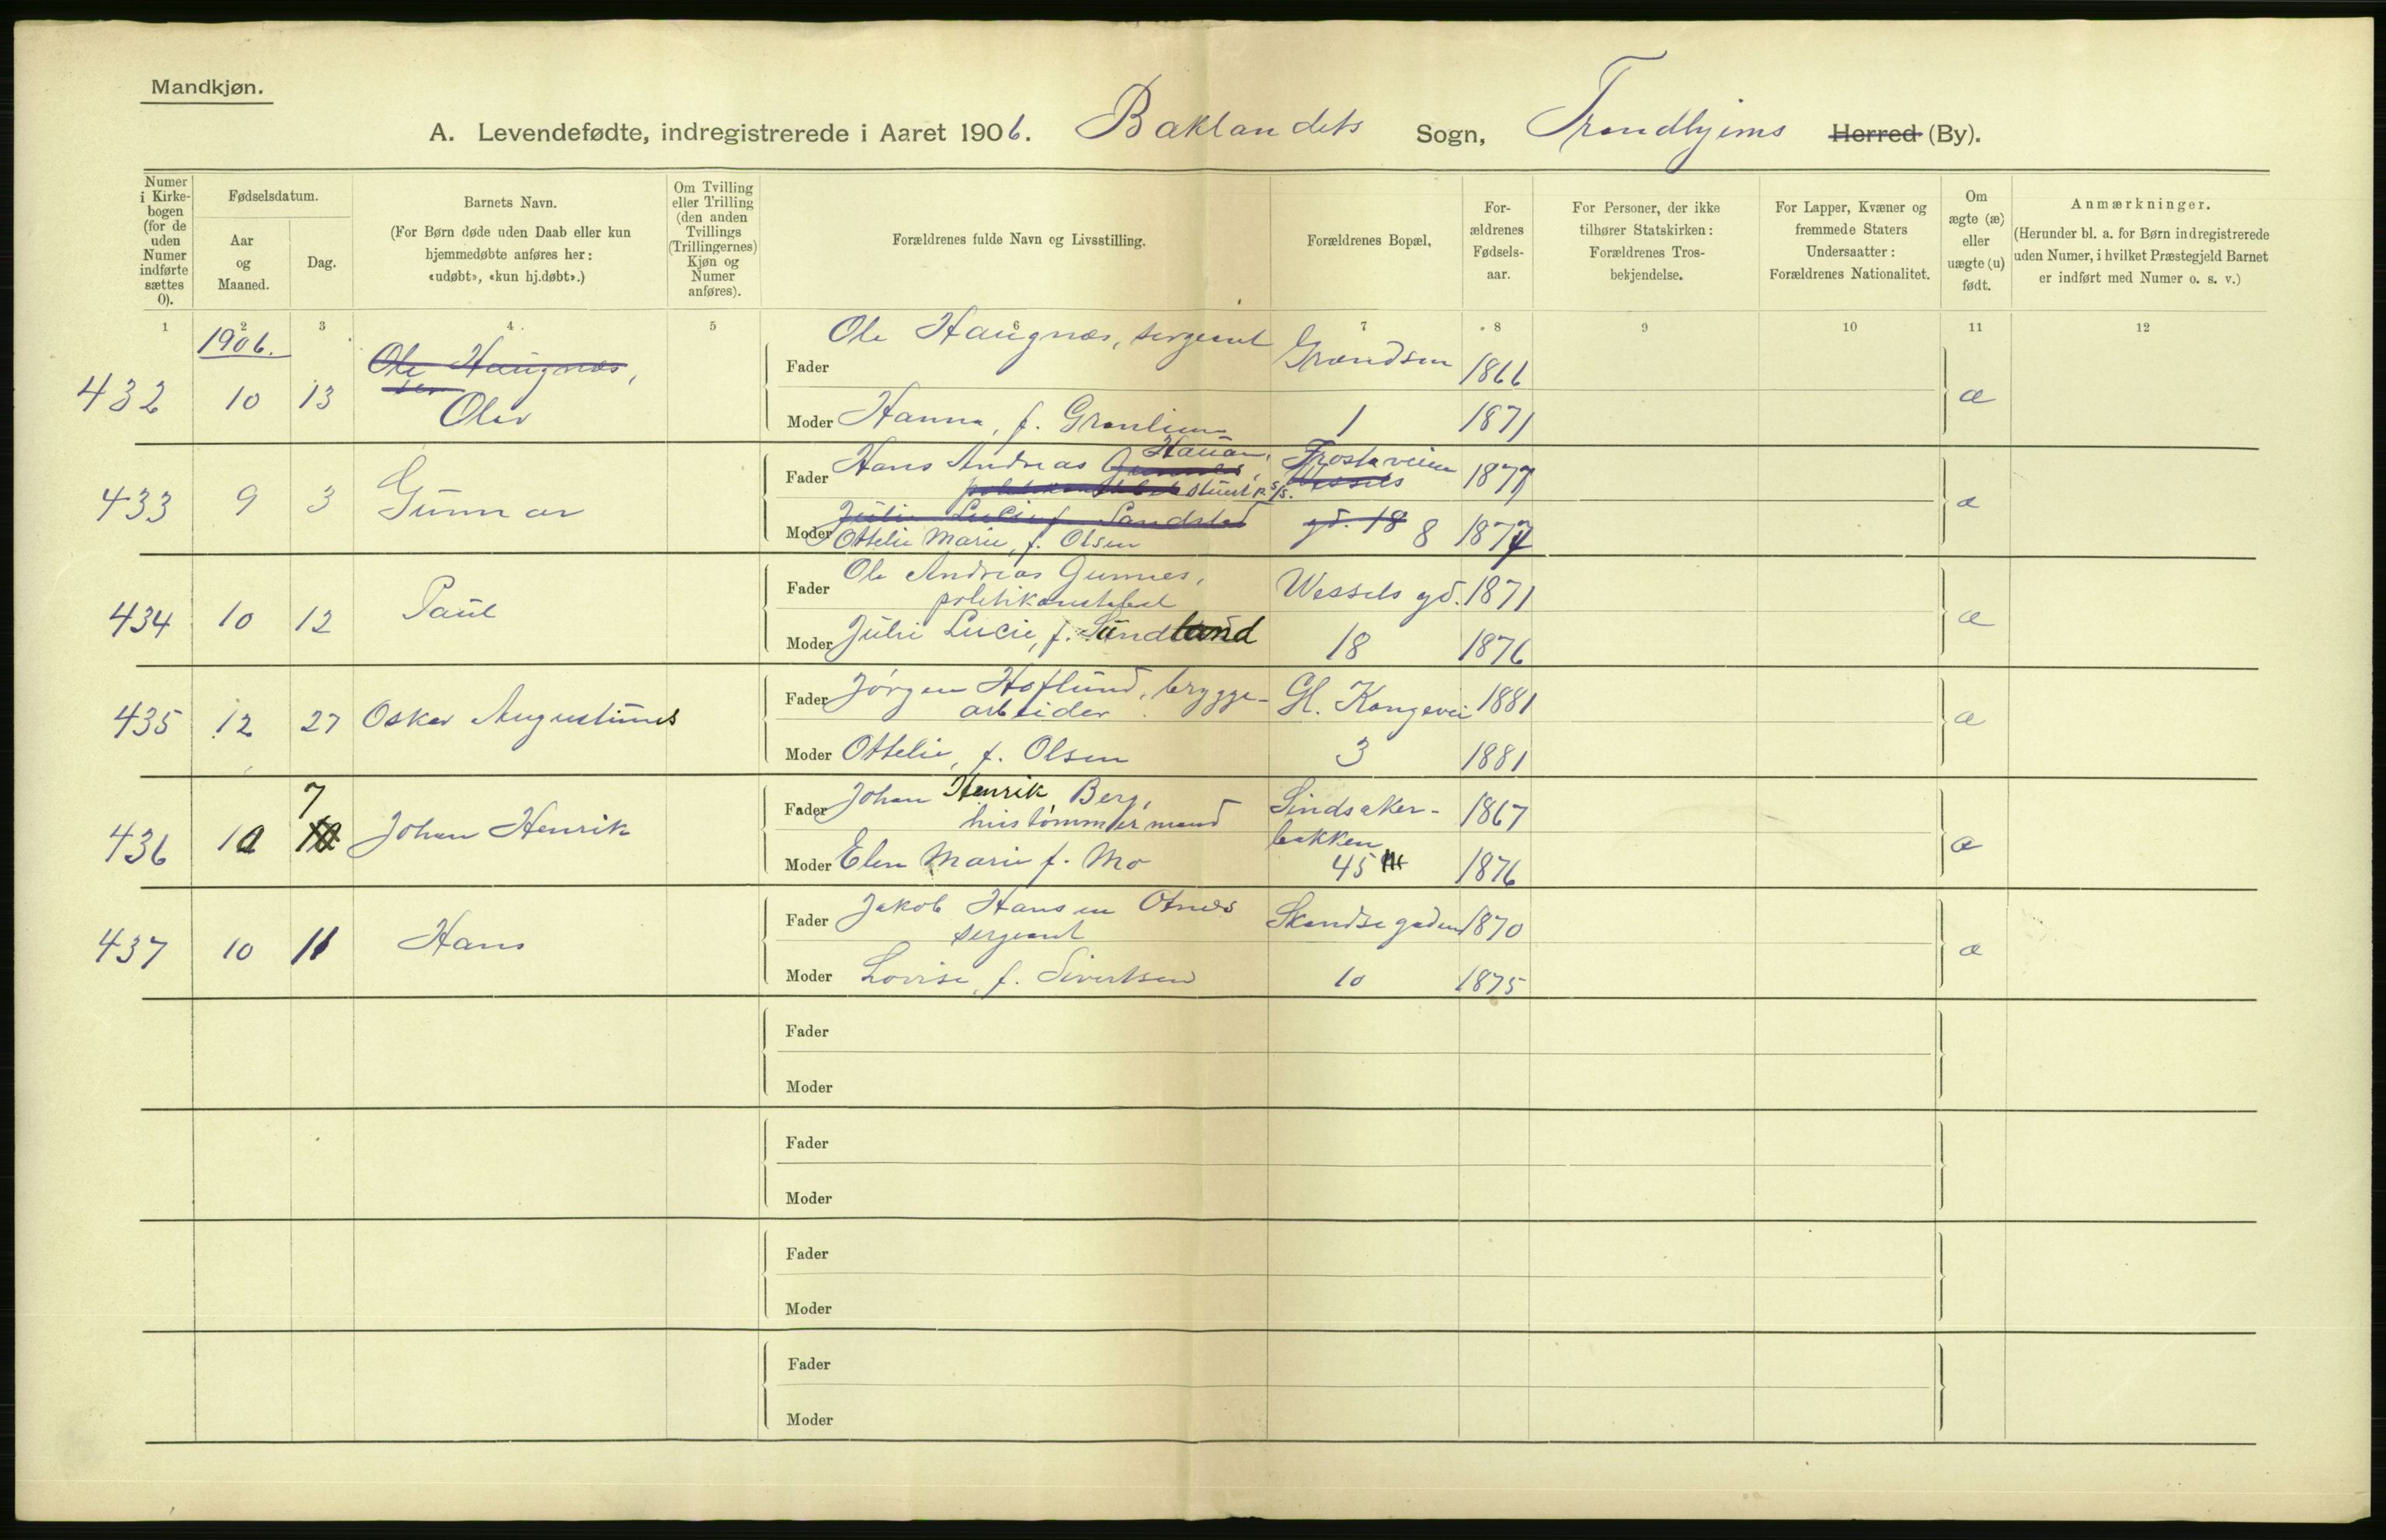 Mandkjøn.
A. Levendefødte, indregistrerede i Aaret 1906. Baklandets Sogn, Trondhjems Herred (By).
Numer i Kirke-bogen (for de uden Numer indførte sættes 0).
Fødselsdatum.
Aar og Maaned.
Dag.
Barnets Navn.
(For Børn døde uden Daab eller kun hjemmedøbte anføres her: «udøbt», «kun hj.døbt».)
Om Tvilling eller Trilling (den anden Tvillings (Trillingernes) Kjøn og Numer anføres).
Forældrenes fulde Navn og Livsstilling.
Forældrenes Bopæl,
For-ældrenes Fødsels-aar.
For Personer, der ikke tilhører Statskirken: Forældrenes Tros-bekjendelse.
For Lapper, Kvæner og fremmede Staters Undersaatter: Forældrenes Nationalitet.
Om ægte (æ) eller uægte (u) født.
Anmærkninger.
(Herunder bl. a. for Børn indregistrerede uden Numer, i hvilket Præstegjeld Barnet er indført med Numer o. s. v.)
1 2 3 4 5 6 7 8 9 10 11 12
1906.
432 10 13 Ole Haugnæs, Olav
Fader Ole Haugnæs, sergeant Grændsen 1866 æ
Moder Hanna, f. Grønlien 1 1871
433 9 3 Gunnar
Fader Hans Andreas Gunnes, Hauan, Frostaveien Wessels 1877 æ
politikonstabel stuert p. s/s.
Moder Julie Lucie f. Sandstad gd. 18 8 1877
Ottelie Marie, f. Olsen
434 10 12 Paul
Fader Ole Andreas Gunnes, politikonstabel Wessels gd. 1871 æ
Moder Julie Lucie, f. Sundland 18 1876
435 12 27 Oskar Augustinus
Fader Jørgen Hoflund, brygge-arbeider Gl. Kongevei 1881 æ
Moder Ottelie, f. Olsen 3 1881
436 10 7 Johan Henrik
Fader Johan Henrik Berg, hustømmermand Sindsaker-bakken 1867 æ
Moder Elen Marie f. Mo 45 1876
437 10 11 Hans
Fader Jakob Hansen Otnes sergeant Skandsegaden 1870 æ
Moder Lovise, f. Sivertsen 10 1875
Fader
Moder
Fader
Moder
Fader
Moder
Fader
Moder